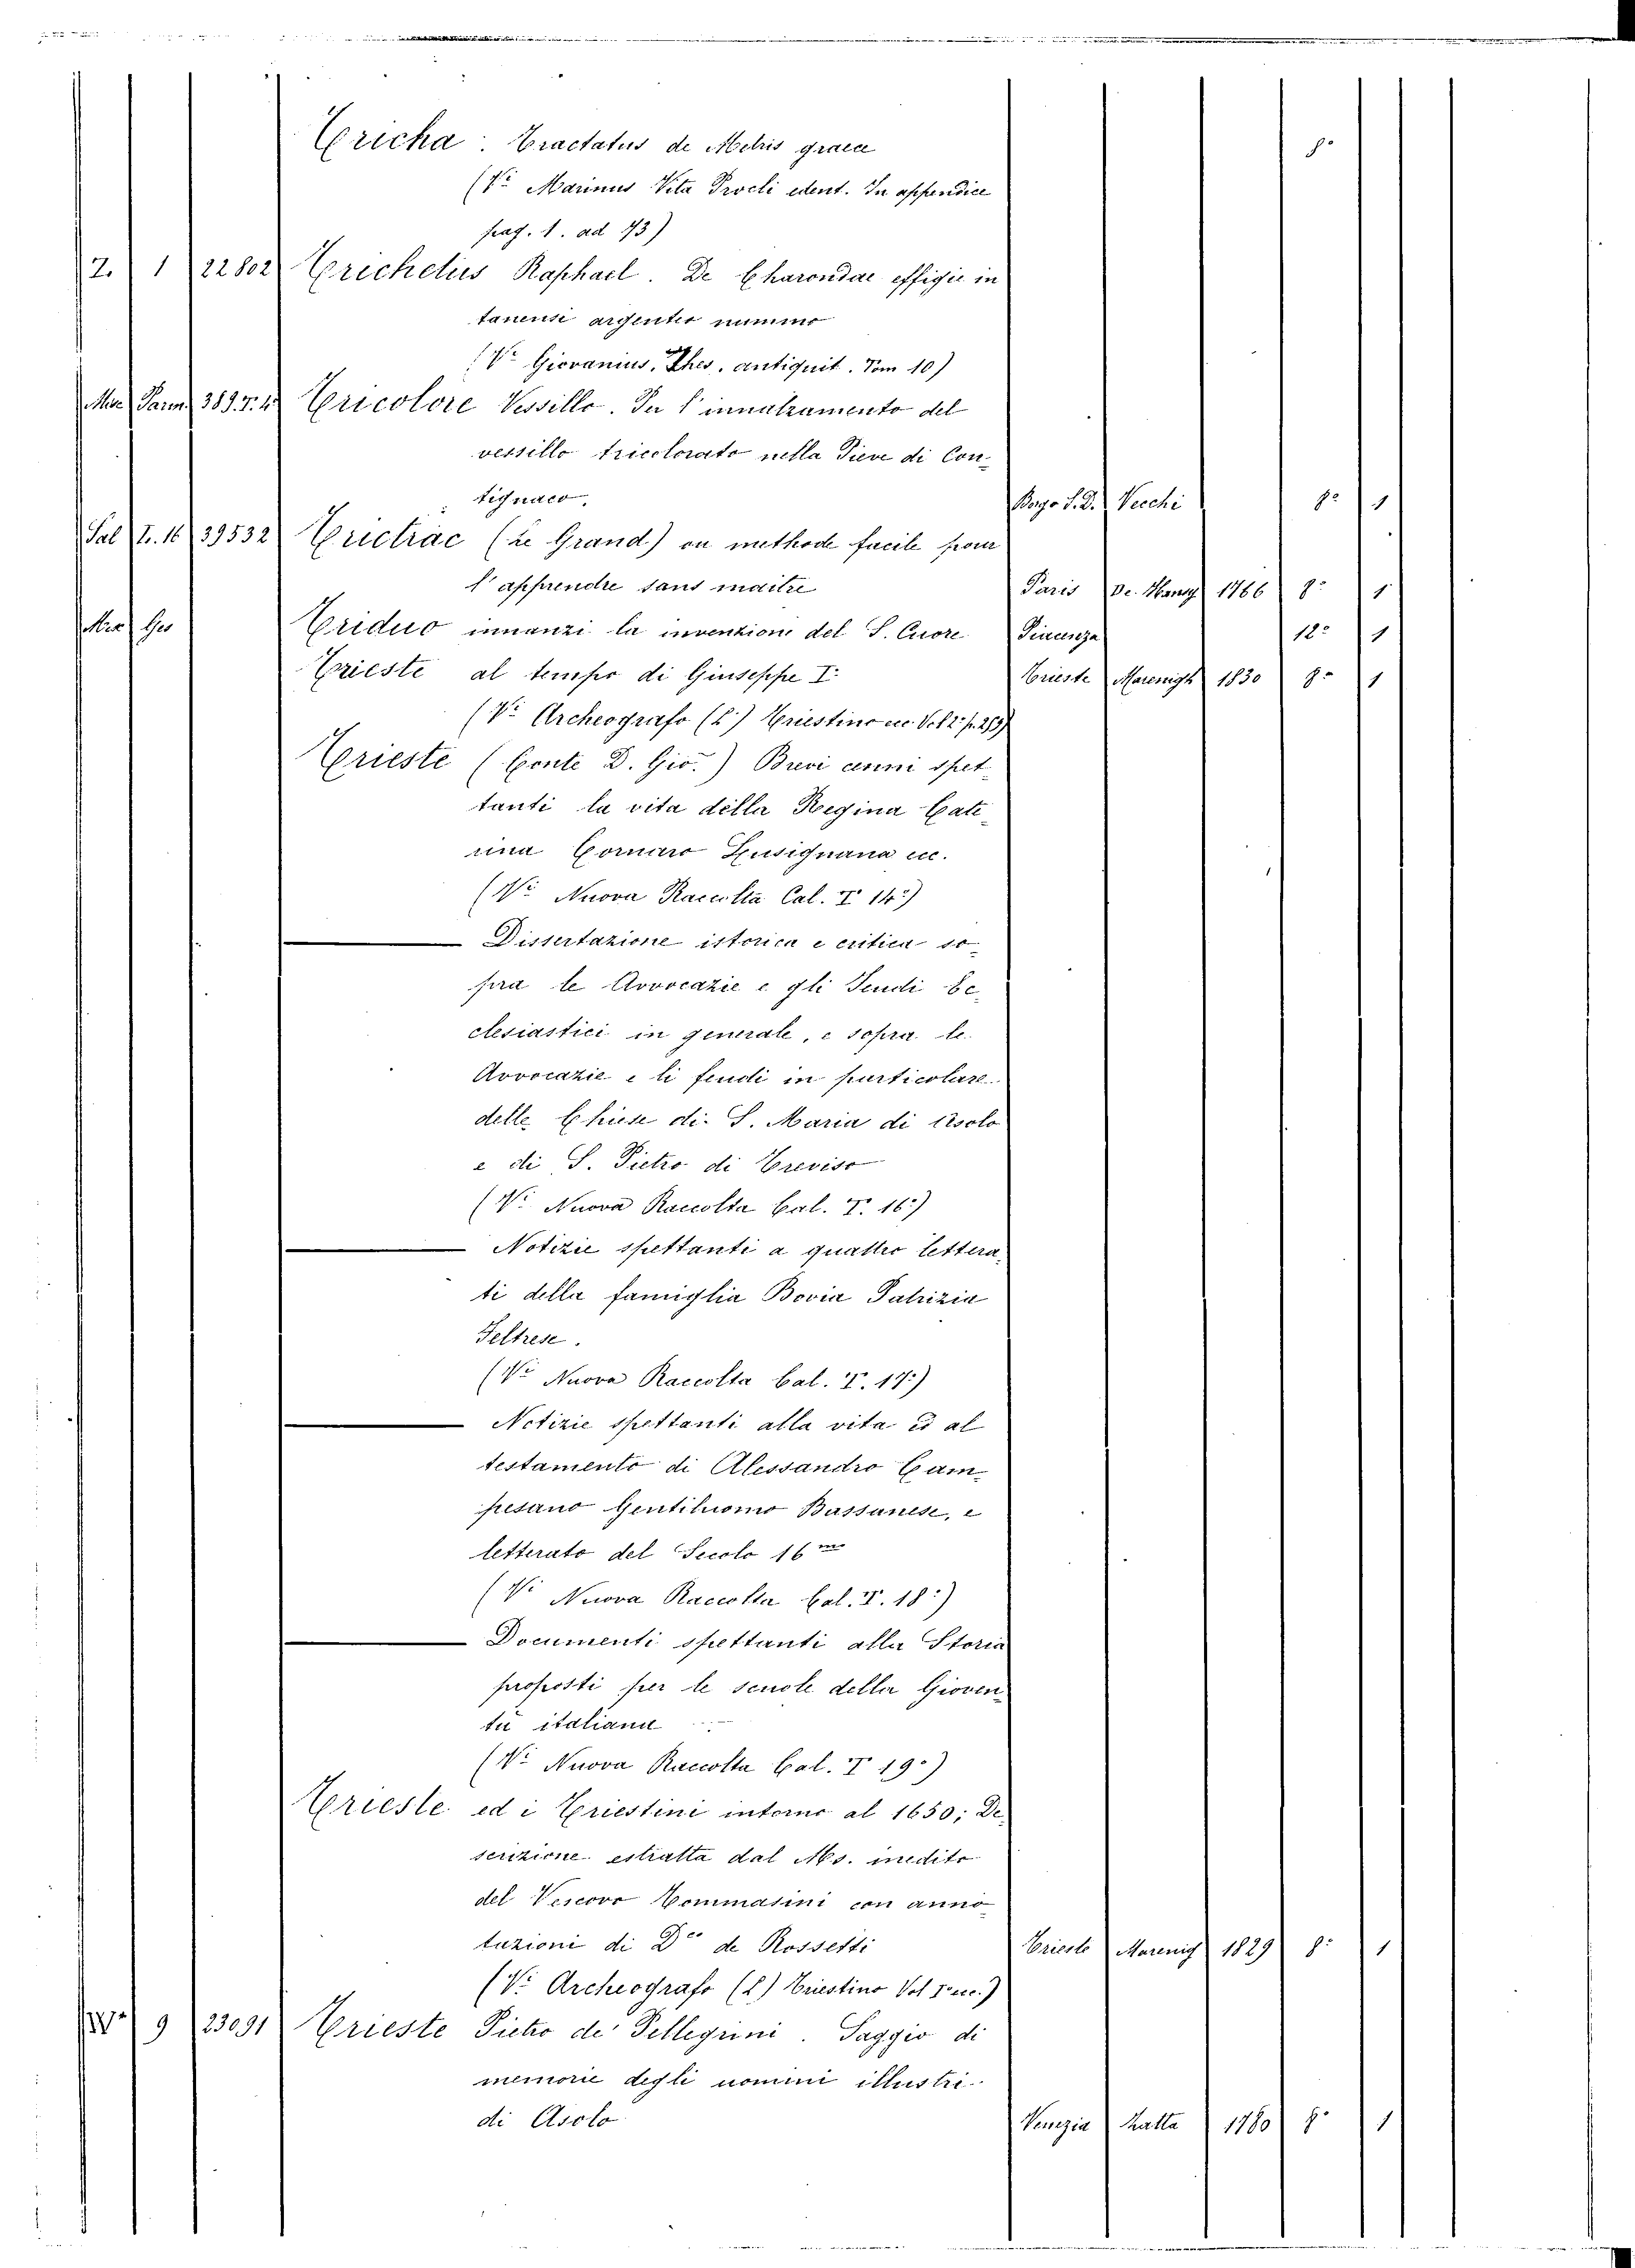 Tricha: Tractatus de Metris graece 8°
(V° Marinus Vita Procli edent. In appendice
pag. 1. ad 43)
Z. 1 22802 Trichetus Raphael. De Charondae effigie in
argenteo nummo
(V° Giovanius, Thes. antiquit. Tom 10)
Misc Parm. 389. T. 4 Tricolore Vessillo. Per l'innalzamento del
vessillo tricolorato nella Pieve di Con-
tignaco. Borgo S. D. Vecchi 8° 1
Sal I. 16 39532 Trictrac (Le Grand) ou methode facile pour
l'apprendre sans maitre Paris De Hansy 1766 8° 1
Misc Ges Triduo innanzi la invenzione del S. Cuore Piacenza 12° 1
Trieste al tempo di Giuseppe I° Trieste Marenigh 1830 8° 1
(V° Archeografo (L') Triestino ec Vol 2° p. 259)
Trieste (Conte D. Gio.) Brevi cenni spet-
tanti la vita della Regina Cate-
rina Cornaro Lusignana ec.
(V° Nuova Raccolta Cal. T 14°)
Dissertazione istorica e critica so-
pra le Avvocazie e gli Feudi Ec-
clesiastici in generale, e sopra le
Avvocazie e li feudi in particolare
delle Chiese di S. Maria di Asolo
e di S. Pietro di Treviso
(V° Nuova Raccolta Cal. T. 16°)
Notizie spettanti a quattro lettera-
ti della famiglia Bovia Patrizia
Feltrese.
(V° Nuova Raccolta Cal. T. 17°)
Notizie spettanti alla vita ed al
testamento di Alessandro Cam-
pesano Gentiluomo Bassanese, e
letterato del Secolo 16mo
(V° Nuova Raccolta Cal. T. 18°)
Documenti spettanti alla Storia
proposti per le scuole della Gioven-
tù italiana
(V° Nuova Raccolta Cal. T 19°)
Trieste ed i Triestini intorno al 1650; De-
scrizione estratta dal Ms. inedito
del Vescovo Tommasini con anno-
tazioni di D. de Rossetti Trieste Marenigh 1829 8° 1
(V° Archeografo (L') Triestino Vol I° ec.)
9 23091 Trieste Pietro de' Pellegrini. Saggio di
memorie degli uomini illustri
di Asolo Venezia Zatta 1780 8° 1